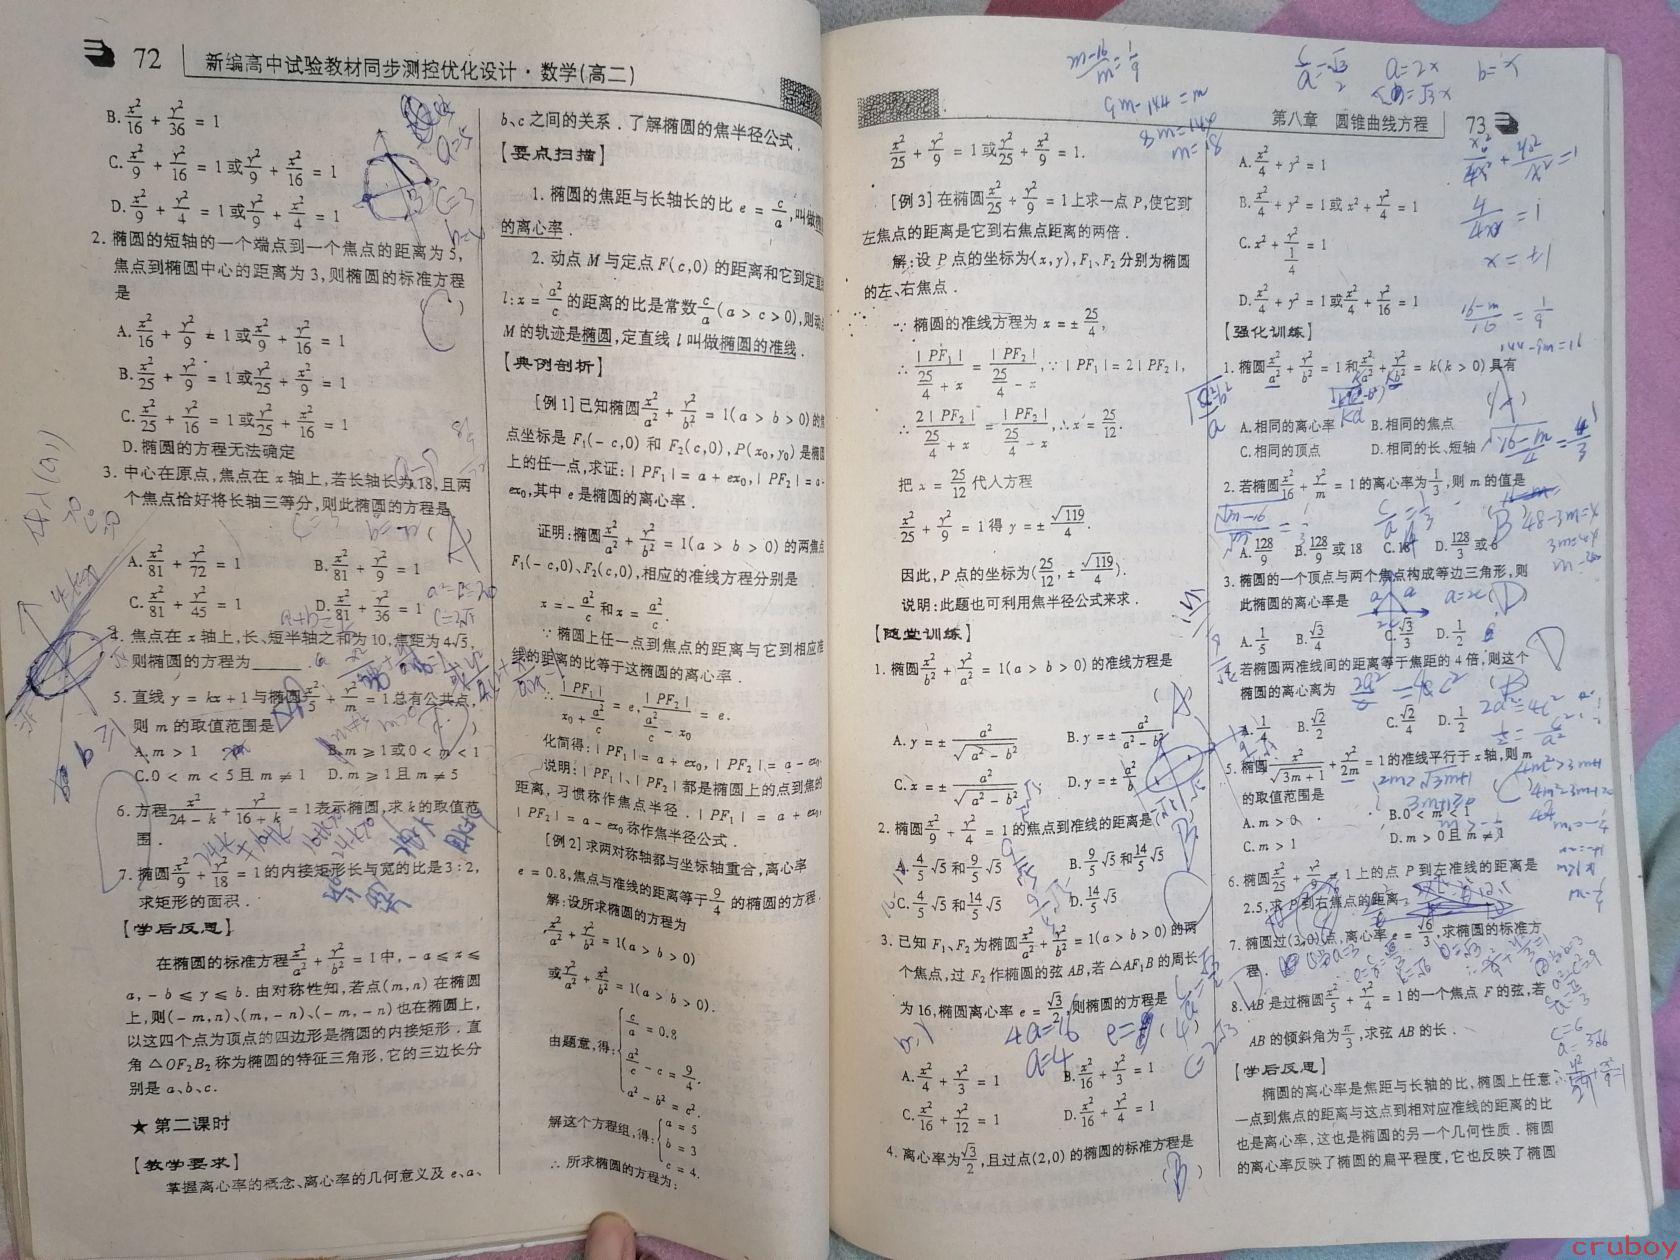 72 新编高中试验教材同步测控优化设计·数学(高二)
B. x²/16 + y²/36 = 1
C. x²/9 + y²/16 = 1 或 y²/9 + x²/16 = 1
D. x²/9 + y²/4 = 1 或 y²/9 + x²/4 = 1
2. 椭圆的短轴的一个端点到一个焦点的距离为5,
焦点到椭圆中心的距离为3,则椭圆的标准方程
是
A. x²/16 + y²/9 = 1 或 x²/9 + y²/16 = 1
B. x²/25 + y²/9 = 1 或 y²/25 + x²/9 = 1
C. x²/25 + y²/16 = 1 或 y²/25 + x²/16 = 1
D. 椭圆的方程无法确定
3. 中心在原点,焦点在x轴上,若长轴长为18,且两
个焦点恰好将长轴三等分,则此椭圆的方程是
A. x²/81 + y²/72 = 1 B. x²/81 + y²/9 = 1
C. x²/81 + y²/45 = 1 D. x²/81 + y²/36 = 1
4. 焦点在x轴上,长、短半轴之和为10,焦距为4√5,
则椭圆的方程为______.
5. 直线 y = kx + 1 与椭圆 x²/5 + y²/m = 1 总有公共点,
则m的取值范围是
A. m > 1 B. m ⩾ 1 或 0 < m < 1
C. 0 < m < 5 且 m ≠ 1 D. m ⩾ 1 且 m ≠ 5
6. 方程 x²/(24 − k) + y²/(16 + k) = 1 表示椭圆,求k的取值范
围.
7. 椭圆 x²/9 + y²/18 = 1 的内接矩形长与宽的比是3:2,
求矩形的面积.
【学后反思】
在椭圆的标准方程 x²/a² + y²/b² = 1 中, −a ⩽ x ⩽
a, −b ⩽ y ⩽ b. 由对称性知,若点(m,n)在椭圆
上,则(−m,n)、(m,−n)、(−m,−n)也在椭圆上,
以这四个点为顶点的四边形是椭圆的内接矩形. 直
角△OF₂B₂称为椭圆的特征三角形,它的三边长分
别是a、b、c.
★ 第二课时
【教学要求】
掌握离心率的概念、离心率的几何意义及e、a、
b、c之间的关系. 了解椭圆的焦半径公式.
【要点扫描】
1. 椭圆的焦距与长轴长的比 e = c/a, 叫做椭圆
的离心率.
2. 动点M与定点F(c,0)的距离和它到定直线
l: x = a²/c 的距离的比是常数 c/a (a > c > 0), 则动点
M的轨迹是椭圆,定直线l叫做椭圆的准线.
【典例剖析】
[例1] 已知椭圆 x²/a² + y²/b² = 1(a > b > 0)的焦
点坐标是F₁(−c,0)和F₂(c,0), P(x₀,y₀)是椭圆
上的任一点,求证:|PF₁| = a + ex₀, |PF₂| = a −
ex₀, 其中e是椭圆的离心率.
证明:椭圆 x²/a² + y²/b² = 1(a > b > 0)的两焦点
F₁(−c,0)、F₂(c,0), 相应的准线方程分别是
x = −a²/c 和 x = a²/c.
∵ 椭圆上任一点到焦点的距离与它到相应准
线的距离的比等于这椭圆的离心率.
∴ |PF₁|/(x₀ + a²/c) = e, |PF₂|/(a²/c − x₀) = e.
化简得:|PF₁| = a + ex₀, |PF₂| = a − ex₀.
说明:|PF₁|、|PF₂|都是椭圆上的点到焦的
距离,习惯称作焦点半径. |PF₁| = a + ex₀,
|PF₂| = a − ex₀ 称作焦半径公式.
[例2] 求两对称轴都与坐标轴重合,离心率
e = 0.8, 焦点与准线的距离等于 9/4 的椭圆的方程.
解:设所求椭圆的方程为
x²/a² + y²/b² = 1(a > b > 0)
或 y²/a² + x²/b² = 1(a > b > 0).
由题意,得: c/a = 0.8
a²/c − c = 9/4,
a² − b² = c².
解这个方程组,得: a = 5
b = 3
c = 4.
∴ 所求椭圆的方程为:
第八章 圆锥曲线方程 73
x²/25 + y²/9 = 1 或 y²/25 + x²/9 = 1.
[例3] 在椭圆 x²/25 + y²/9 = 1 上求一点P,使它到
左焦点的距离是它到右焦点距离的两倍.
解:设P点的坐标为(x,y), F₁、F₂分别为椭圆
的左、右焦点.
∵ 椭圆的准线方程为 x = ± 25/4,
∴ |PF₁|/(25/4 + x) = |PF₂|/(25/4 − x), ∵ |PF₁| = 2|PF₂|,
∴ 2|PF₂|/(25/4 + x) = |PF₂|/(25/4 − x), ∴ x = 25/12.
把 x = 25/12 代人方程
x²/25 + y²/9 = 1 得 y = ± √119/4.
因此, P点的坐标为(25/12, ± √119/4).
说明:此题也可利用焦半径公式来求.
【随堂训练】
1. 椭圆 x²/b² + y²/a² = 1(a > b > 0)的准线方程是
(A)
A. y = ± a²/√(a² − b²) B. y = ± a²/(a² − b²)
C. x = ± a²/√(a² − b²) D. y = ± a²/b
2. 椭圆 x²/9 + y²/4 = 1 的焦点到准线的距离是
A. 4/5√5 和 9/5√5 B. 9/5√5 和 14/5√5
C. 4/5√5 和 14/5√5 D. 14/5√5
3. 已知F₁、F₂为椭圆 x²/a² + y²/b² = 1(a > b > 0)的两
个焦点,过F₂作椭圆的弦AB,若△AF₁B的周长
为16,椭圆离心率 e = √3/2, 则椭圆的方程是
4a=16
a=4
A. x²/4 + y²/3 = 1 B. x²/16 + y²/3 = 1
C. x²/16 + y²/12 = 1 D. x²/16 + y²/4 = 1
4. 离心率为 √3/2, 且过点(2,0)的椭圆的标准方程是
(B)
A. x²/4 + y² = 1
B. x²/4 + y² = 1 或 x² + y²/4 = 1
C. x² + y²/(1/4) = 1
D. x²/4 + y² = 1 或 x²/4 + y²/16 = 1
【强化训练】
1. 椭圆 x²/a² + y²/b² = 1 和 x²/a² + y²/b² = k(k > 0)具有
(A)
A. 相同的离心率 B. 相同的焦点
C. 相同的顶点 D. 相同的长、短轴
2. 若椭圆 x²/16 + y²/m = 1 的离心率为 1/3, 则m的值是
(B)
A. 128/9 B. 128/9 或 18 C. 18 D. 128/3 或 6
3. 椭圆的一个顶点与两个焦点构成等边三角形,则
此椭圆的离心率是 (D)
A. 1/5 B. √3/4 C. √3/3 D. 1/2
若椭圆两准线间的距离等于焦距的4倍,则这个
椭圆的离心离为
A. 1/4 B. √2/2 C. √2/4 D. 1/2
5. 椭圆 x²/√(3m + 1) + y²/2m = 1 的准线平行于x轴,则m
的取值范围是
A. m > 0 B. 0 < m < 1
C. m > 1 D. m > 0 且 m ≠ 1
6. 椭圆 x²/25 + y²/9 = 1 上的点P到左准线的距离是
2.5, 求P到右焦点的距离.
7. 椭圆过(3,0)点,离心率 e = √6/3, 求椭圆的标准方
程.
8. AB是过椭圆 x²/5 + y²/4 = 1 的一个焦点F的弦,若
AB的倾斜角为 π/3, 求弦AB的长.
【学后反思】
椭圆的离心率是焦距与长轴的比,椭圆上任意
一点到焦点的距离与这点到相对应准线的距离的比
也是离心率,这也是椭圆的另一个几何性质. 椭圆
的离心率反映了椭圆的扁平程度,它也反映了椭圆
cruboy